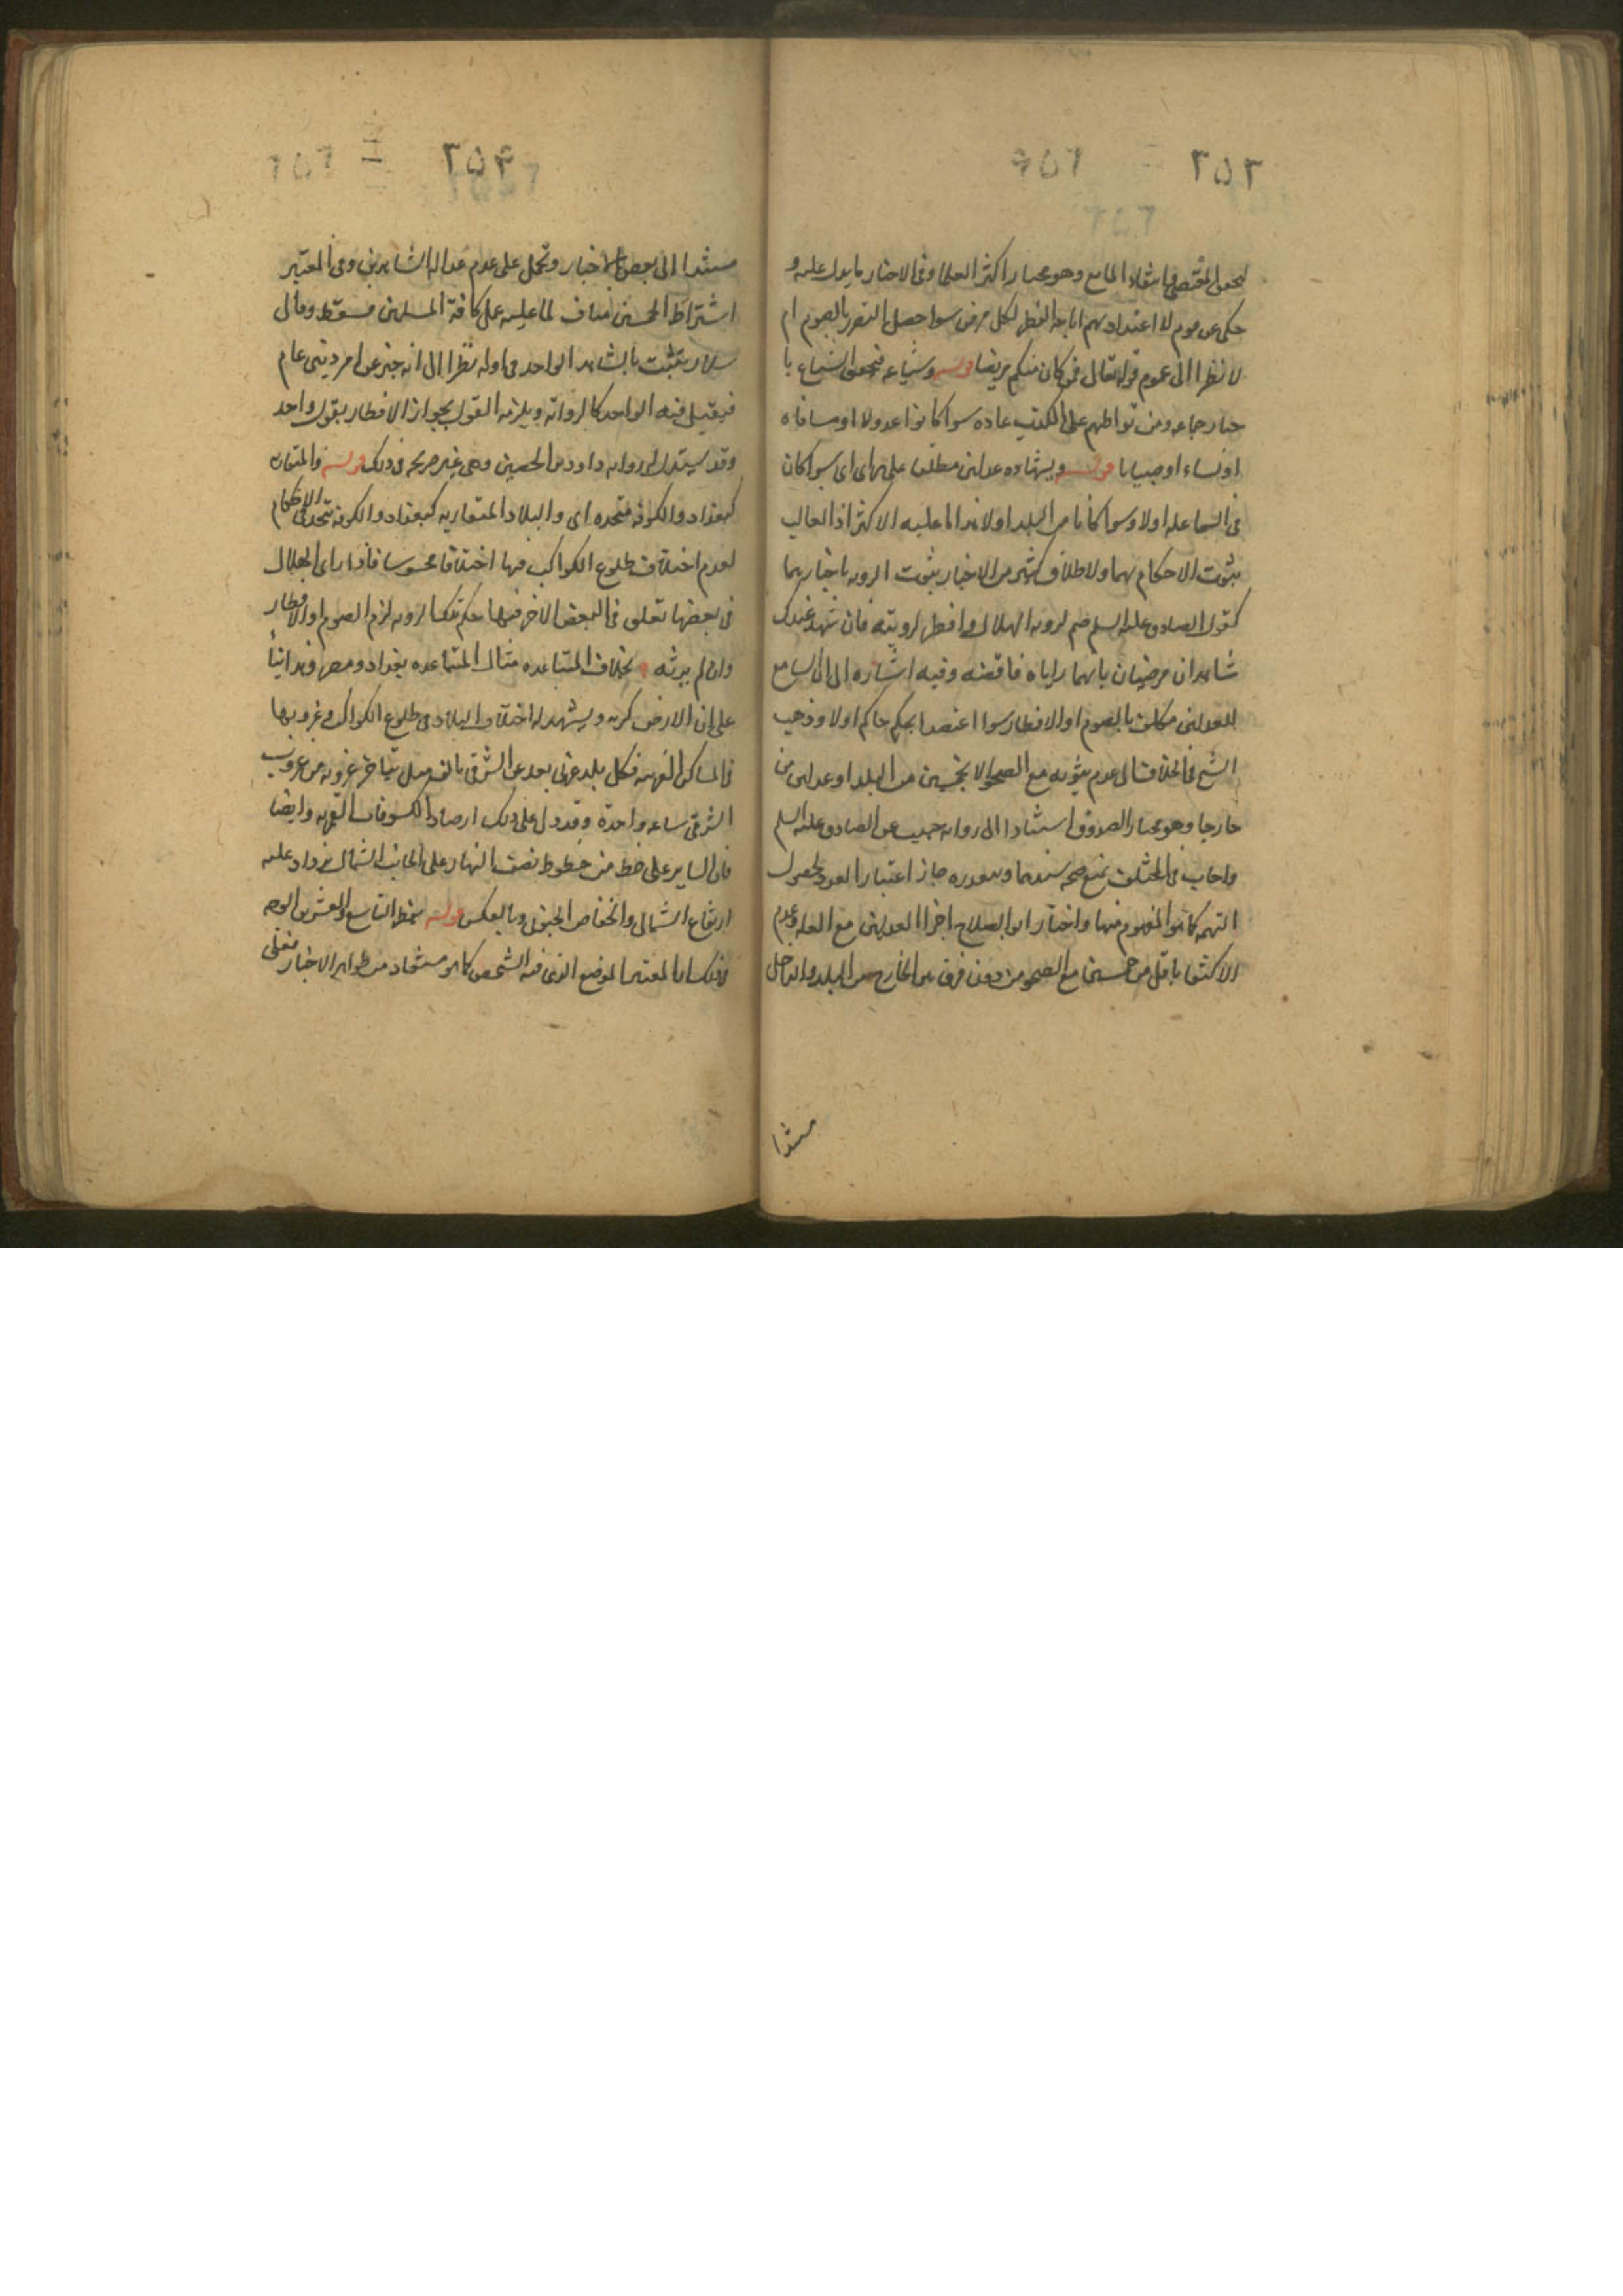 ٢٥٢
لتحقق المقتضى وانتفاء المانع وهو مختار اكثر العلما وفى الاخبار ما يدل عليه و
حكى عن قوم لا اعتداد بهم اباحة الفطر لكل مرض سوا حصل التضرر بالصوم ام
لا نظرا الى عموم قوله تعالى فمن كان منكم مريضا قوله وشياعه فتحقق الشياع با
خبار جماعه ومن تواطهم على الكذب عاده سوا كانوا عدولا او فساقا ه
او نساء او صبيانا قوله وبشهاده عدلين مطلقا على راى اى سوا كان
فى السما عله اولا وسوا كانا من البلد اولا هذا ما عليه الاكثر اذ الغالب
ثبوت الاحكام بهما ولاطلاق كثير من الاخبار بثبوت الرويه باخبارهما
كقول الصادق عليه السلم صم لرويه الهلال وافطر لرويته فان شهد عندك
شاهدان مرضيان بانهما راياه فاقضه وفيه اشاره الى ان السامع
للعدلين مكلف بالصوم او الافطار سوا اعتضدا بحكم حاكم اولا وذهب
الشيخ فى الخلاف الى عدم ثبوته مع الصحو الا بخمسين من البلد او عدلين من
خارجها وهو مختار الصدوق استنادا الى روايه حبيب عن الصادق عليه السلم
واجاب فى المختلف بمنع صحه سندهما وبتقديره جاز اعتبار العدد لحصول
التهمه كما هو المفهوم منها واختار ابو الصلاح اجزا العدلين مع العله وعدم
الاكتفا باقل من خمسين مع الصحو من دون فرق بين الخارج من البلد والداخل
مستندا
٢٥٣
مستندا الى بعض الاخبار وتحمل على عدم عداله الشاهدين وفى المعتبر
اشتراط الخمسين مناف لما عليه على كافة المسلمين فسقط وقال
سلار يثبت بالشاهد الواحد فى اوله نظرا الى انه خبر عن امر دينى عام
فيقبل فيه الواحد كالروايه ويلزمه القول بجواز الافطار بقول واحد
وقد يستدل له بروايه داود بن الحصين وهى غير صريحه فى ذلك قوله والمتقاربه
كبغداد والكوفه متحده اى والبلاد المتقاربه كبغداد والكوفه متحده فى الاحكام
لعدم اختلاف طلوع الكواكب فيها اختلافا محسوسا فاذا راى الهلال
فى بعضها تعلق فى البعض الاخر منها حكم تلك الرويه لزم الصوم او الافطار
وان لم يرته بخلاف المتباعده مثال المتباعده بغداد ومصر وهذا بنا
على ان الارض كريه ويشهد له اختلاف البلاد فى طلوع الكواكب وغروبها
فى المساكن الغربيه فكل بلد غربى بعد عن الشرقى بالف ميل يتاخر غروبه من غروب
الشرقى ساعه واحدة وقد دل على ذلك ارصاد الكسوفات القمريه وايضا
فان الساير على خط من خطوط نصف النهار على الجانب الشمالى يزداد عليه
ارتفاع الشمالى وانخفاض الجنوبى وبالعكس قوله بخط التاسع والعشرين الوجه
فى ذلك ان المعتبر الموضع الذى فيه الشخص كما هو مستفاد من ظواهر الاخبار